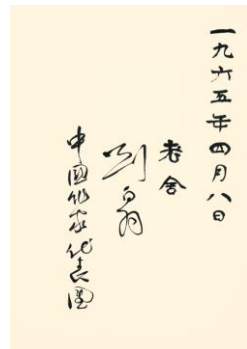 一九六五年四月八日
老舍
刘白羽
中國作家代表團